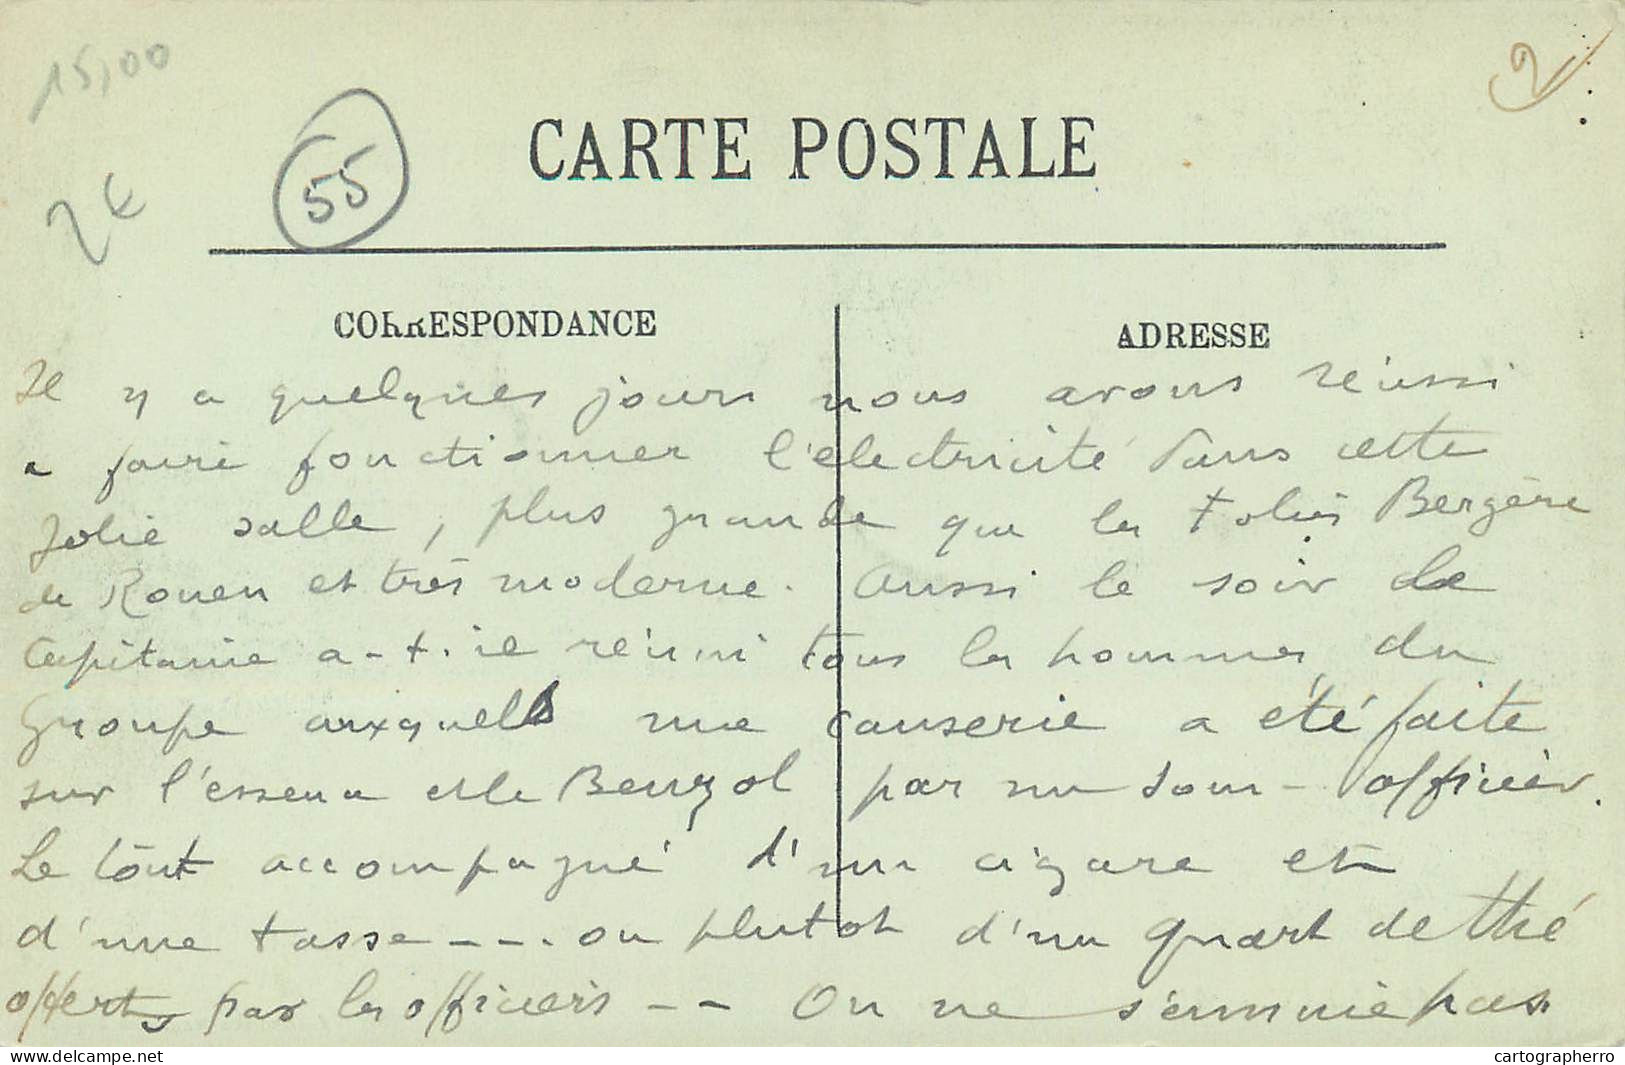 15,00
2
55
2€
CARTE POSTALE
CORRESPONDANCE
ADRESSE
Il y a quelques jours nous avons réussi
a faire fonctionner l'électricité dans cette
jolie salle, plus grande que les Folies Bergère
de Rouen et très moderne. Aussi le soir le
Capitaine a-t-il réuni tous les hommes du
Groupe auxquels une causerie a été faite
sur l'essence et le Benzol par un sous-officier.
Le tout accompagné d'un cigare et
d'une tasse - - - . ou plutot d'un quart de thé
offerts par les officiers - - On ne s'ennuie pas.
www.delcampe.net
cartographerro